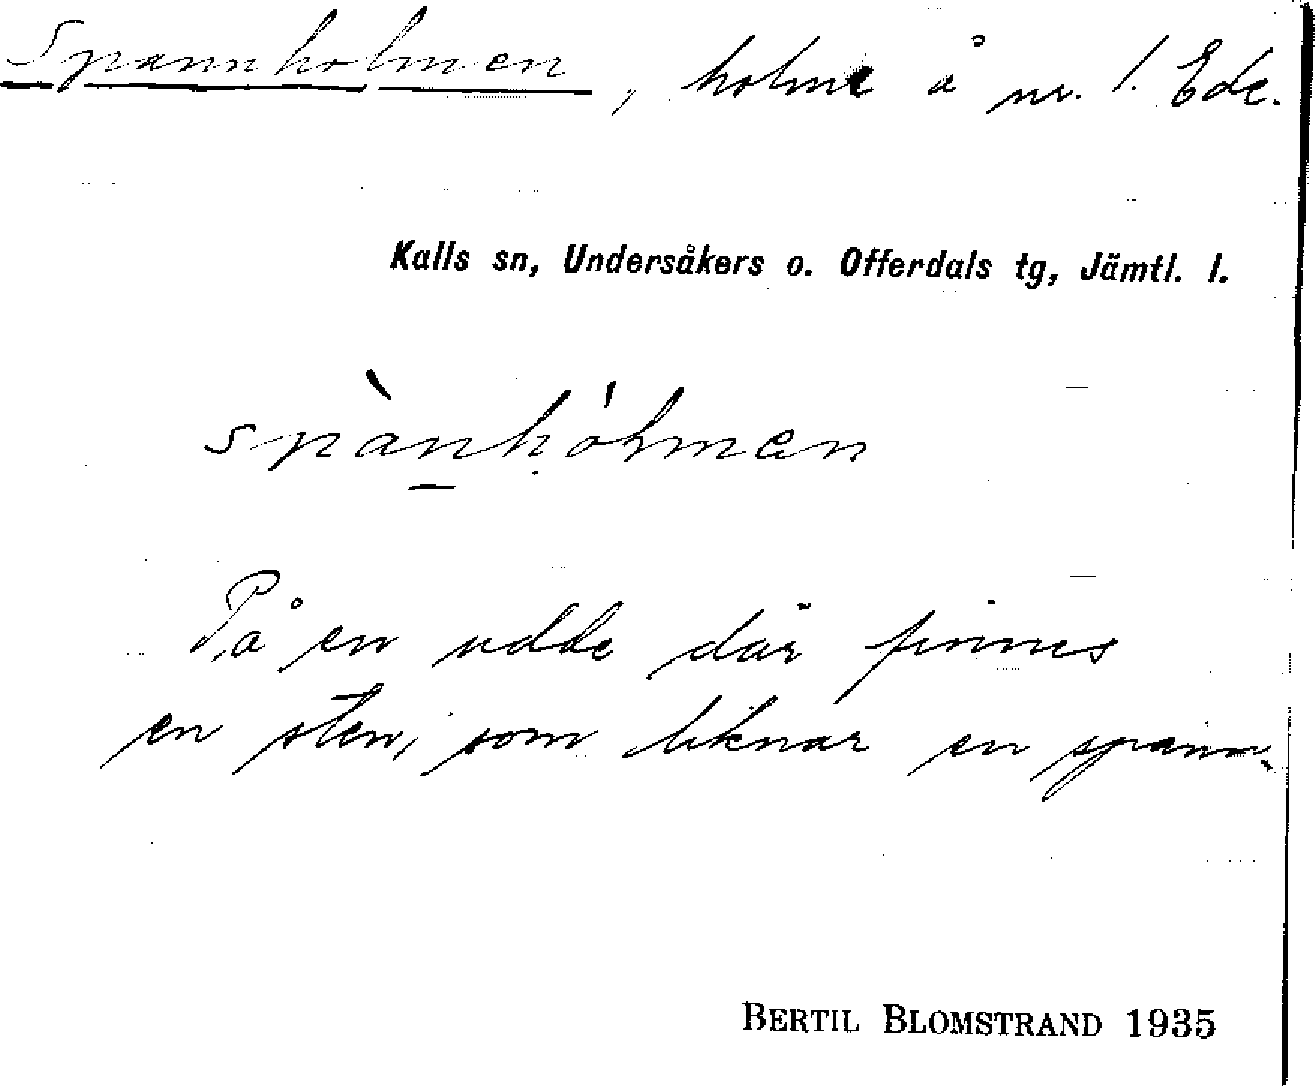 Spannholmen, holme å nr. 1. Ede.
Kalls sn, Undersåkers o. Offerdals tg, Jämtl. l.
spànhólmen
På en udde där finnes
en sten, som liknar en spann.
BERTIL BLOMSTRAND 1935